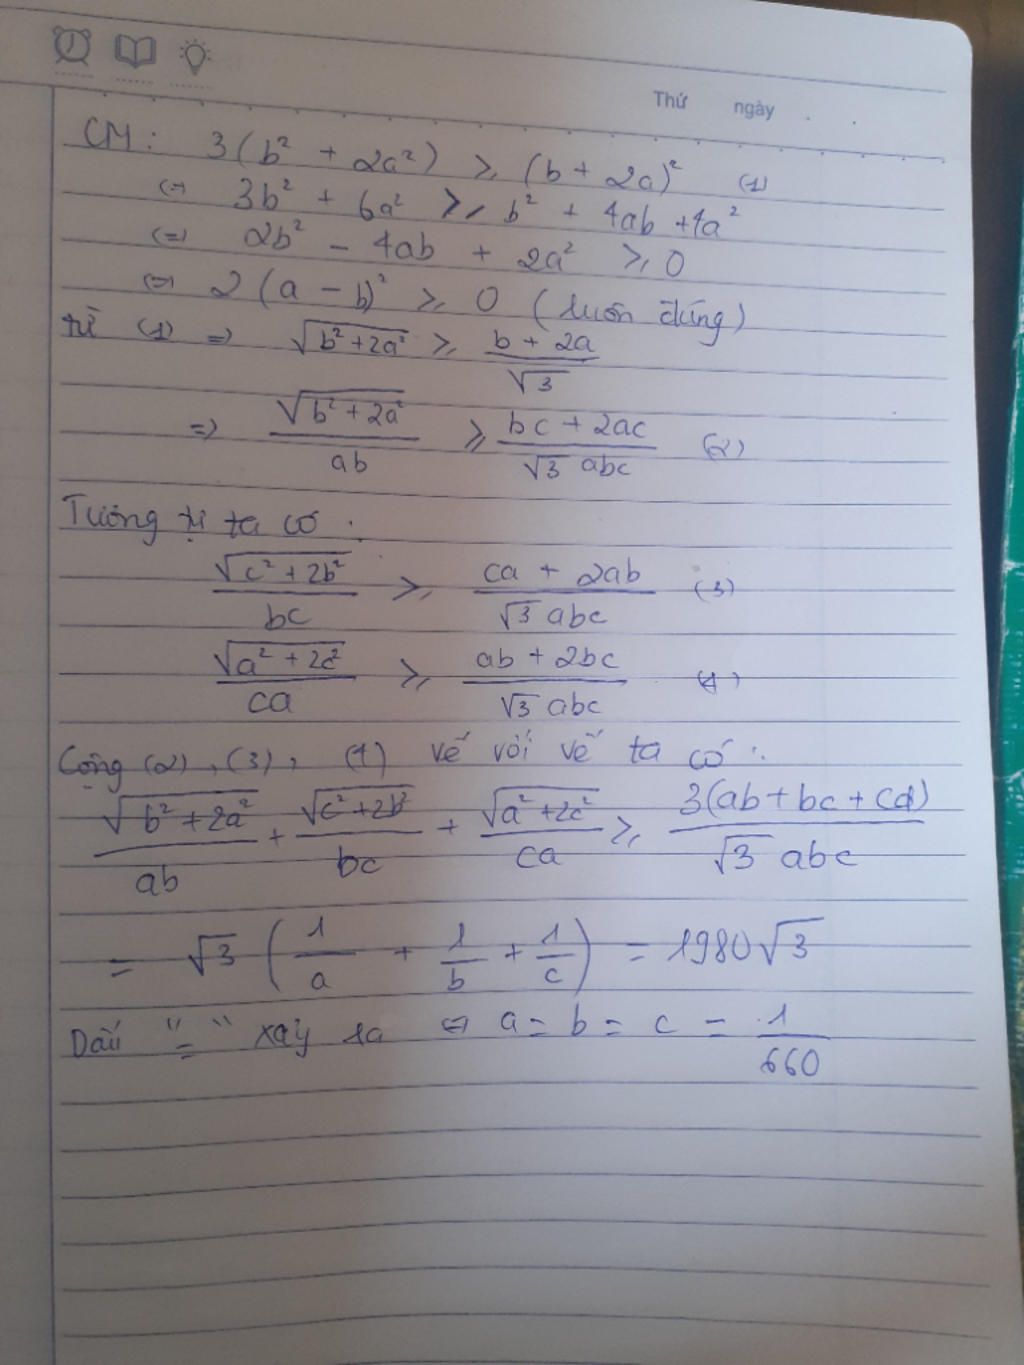 Thứ ngày
CM: 3(b² + 2a²) ≥ (b + 2a)² (1)
⇔ 3b² + 6a² ≥ b² + 4ab + 4a²
⇔ 2b² - 4ab + 2a² ≥ 0
⇔ 2(a - b)² ≥ 0 (luôn đúng)
từ (1) ⇒ √(b²+2a²) ≥ (b + 2a)/√3
⇒ √(b²+2a²)/ab ≥ (bc + 2ac)/(√3 abc) (2)
Tương tự ta có :
√(c²+2b²)/bc ≥ (ca + 2ab)/(√3 abc) (3)
√(a²+2c²)/ca ≥ (ab + 2bc)/(√3 abc) (4)
Cộng (2), (3), (4) vế với vế ta có :
√(b²+2a²)/ab + √(c²+2b²)/bc + √(a²+2c²)/ca ≥ 3(ab+bc+ca)/(√3 abc)
= √3 (1/a + 1/b + 1/c) = 1980√3
Dấu "=" xảy ra ⇔ a = b = c = 1/660